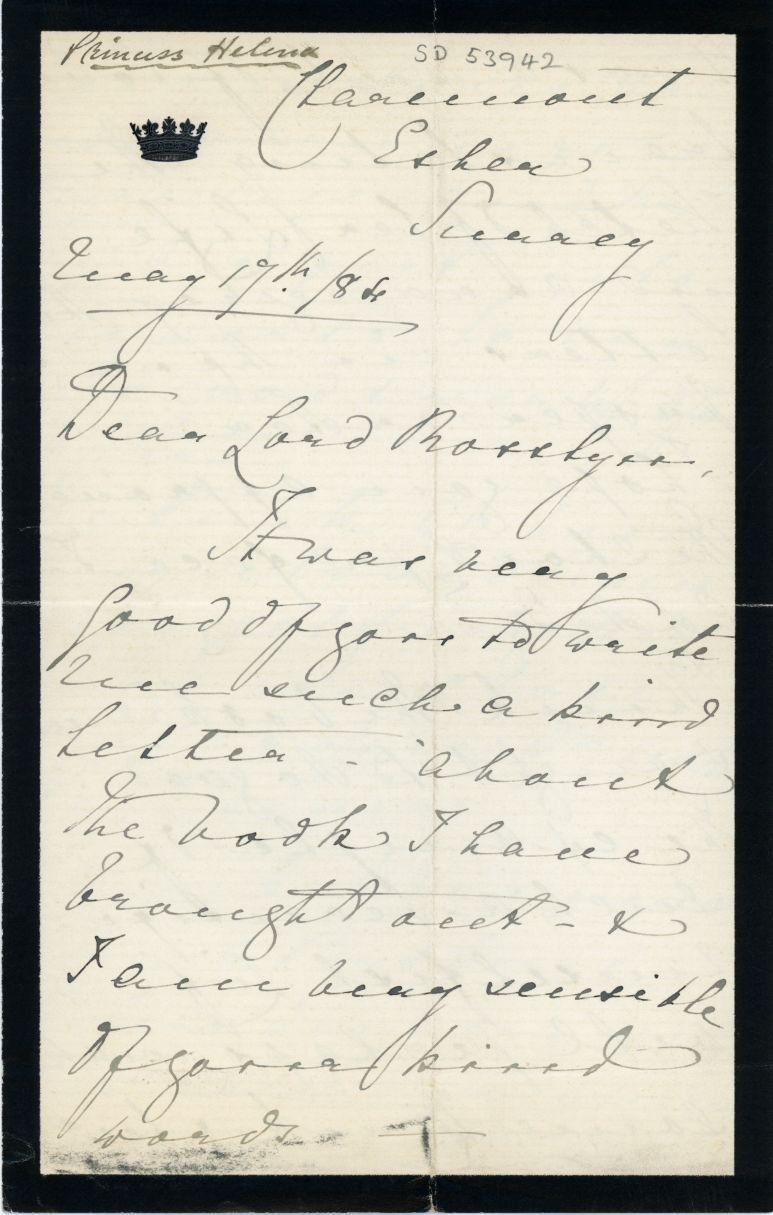 Princess Helena
SD 53942
Claremont
Esher
Surrey
May 19th /84
Dear Lord Rosslyn,
It was very
good of you to write
me such a kind
letter - about
the book I have
brought out - &
I am very sensible
of your kind
words —